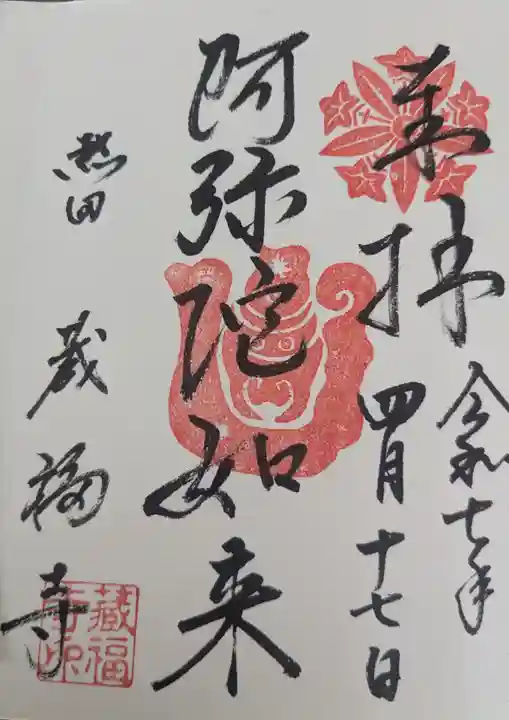 奉拝
令和七年
四月十七日
阿弥陀如来
熱田
蔵福寺
蔵福寺印